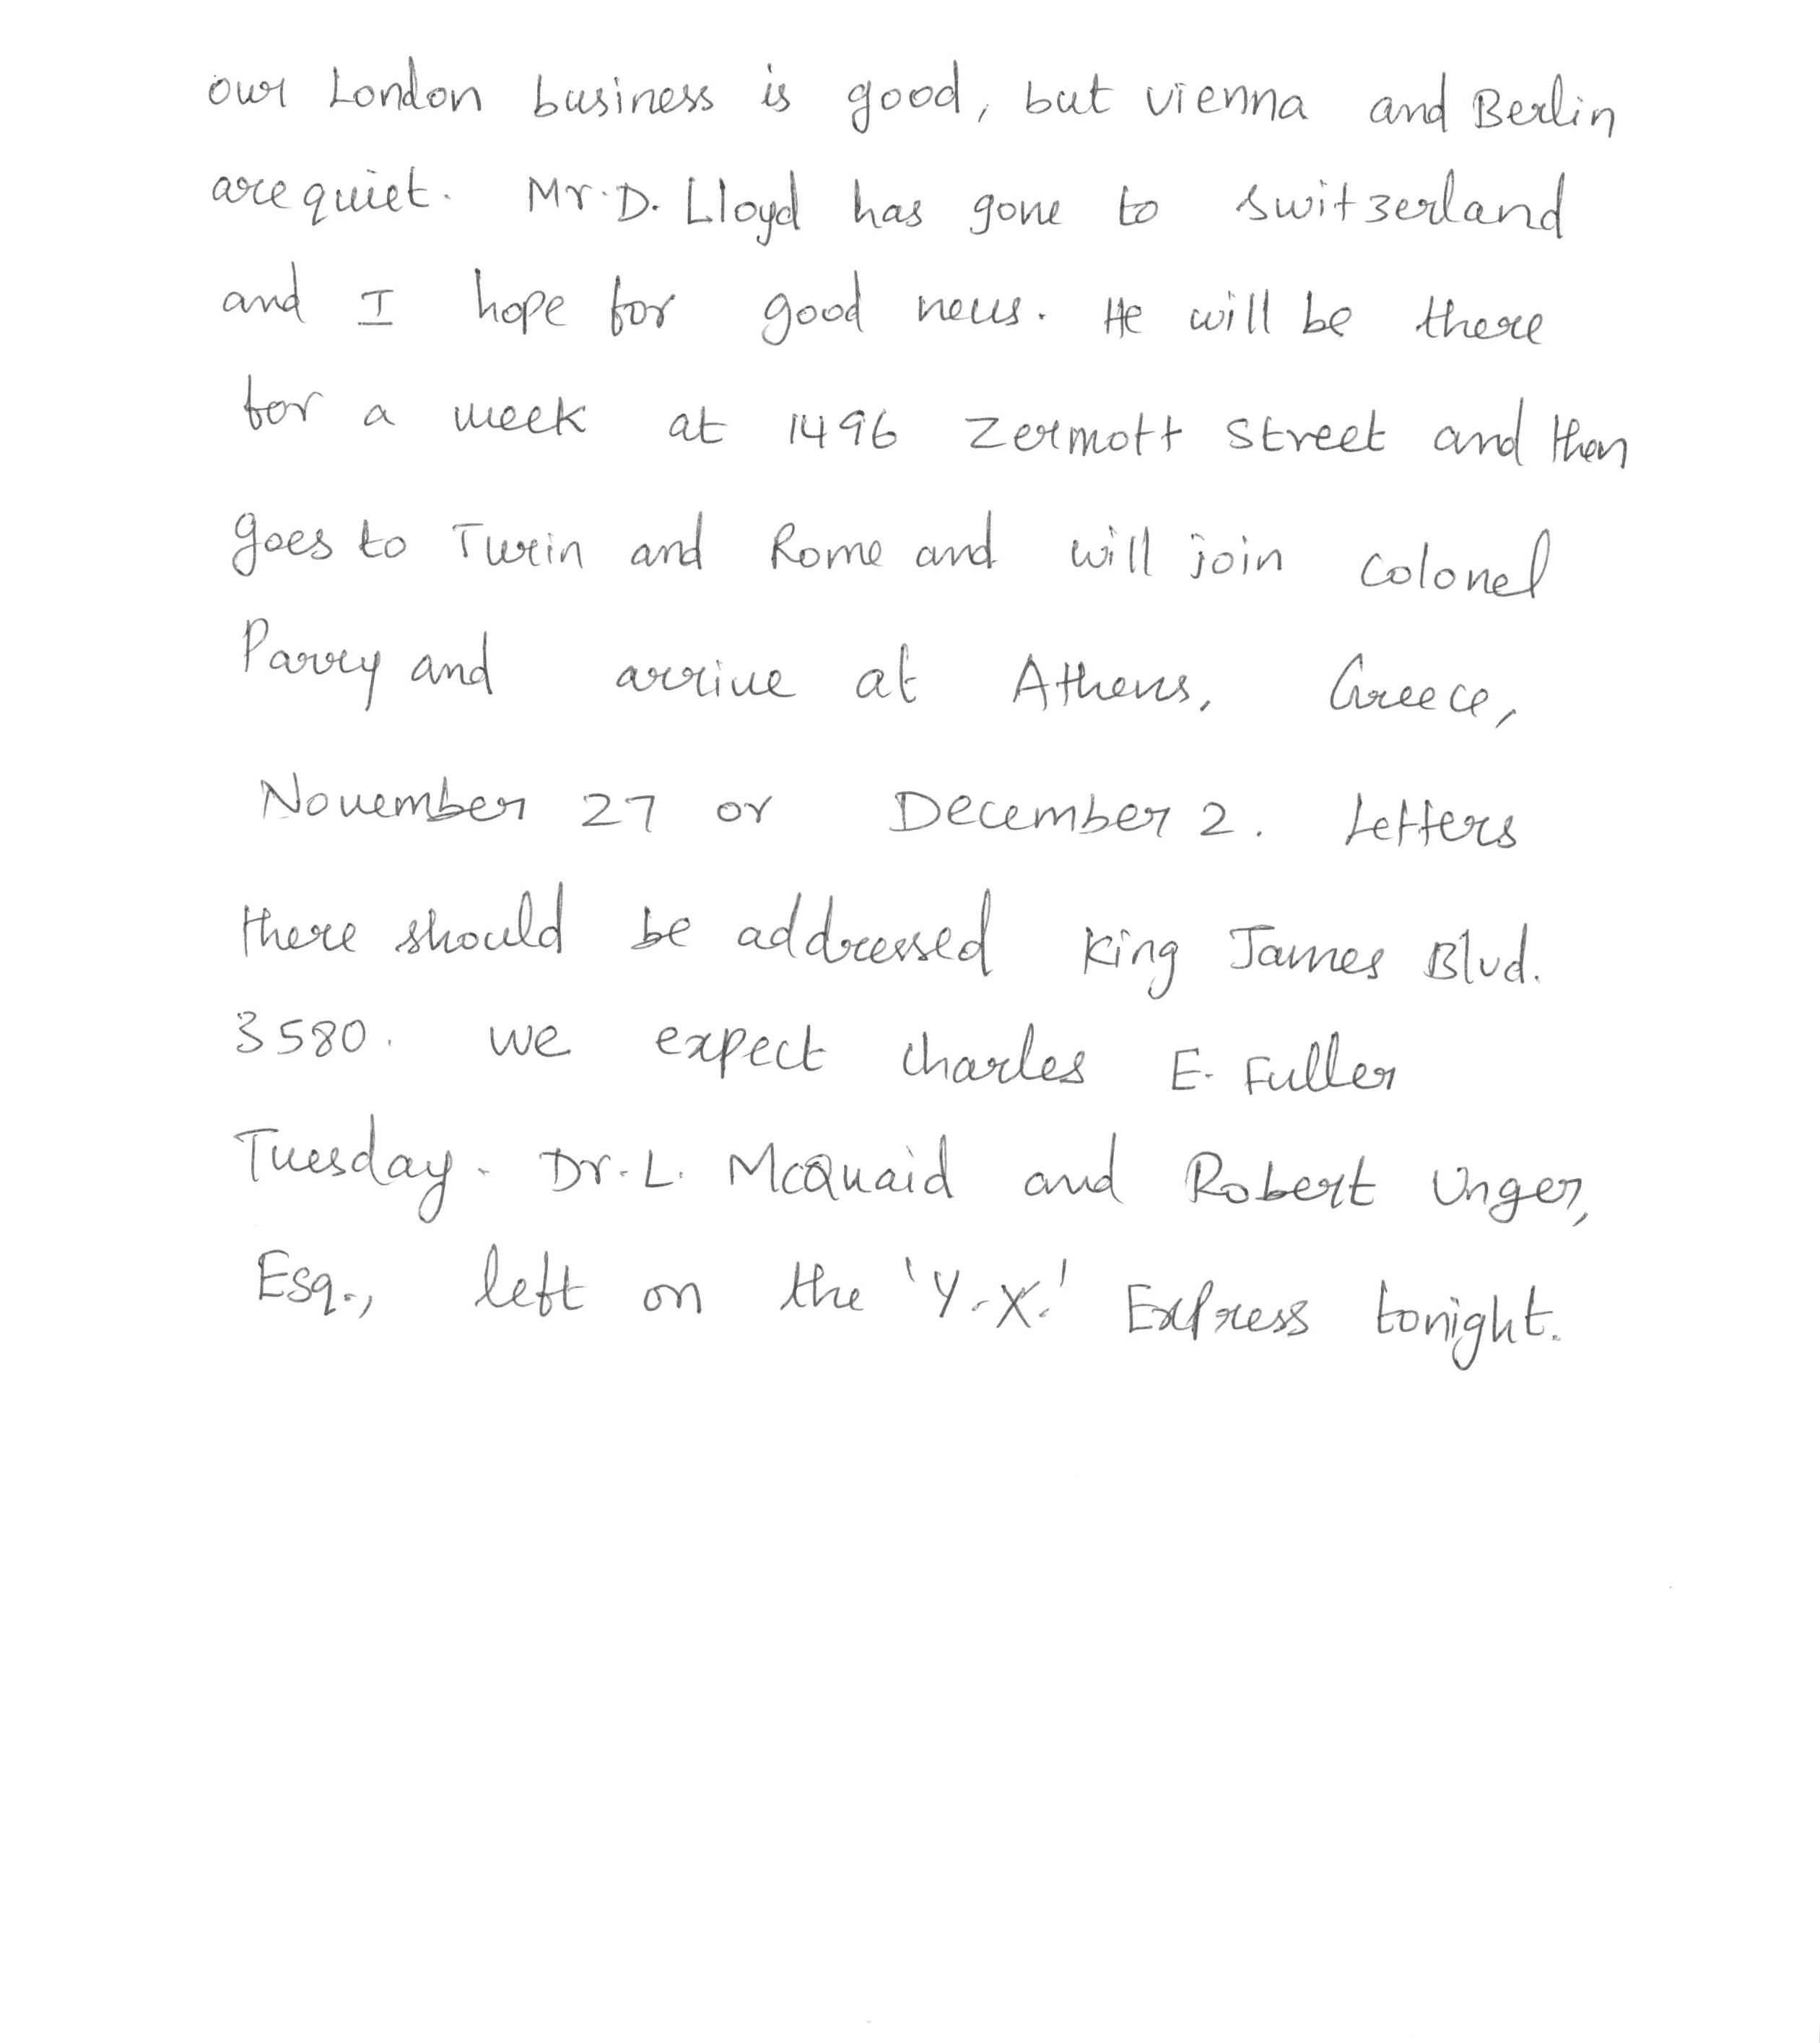 our London business is good, but vienna and Berlin
are quiet. Mr. D. Lloyd has gone to switzerland
and I hope for good news. He will be there
for a week at 1496 Zermott street and then
goes to Turin and Rome and will join colonel
Parry and arrive at Athens, Greece,
November 27 or December 2. Letters
there should be addressed King James Blvd.
3580. we expect charles E. Fuller
Tuesday. Dr. L. McQuaid and Robert Unger,
Esq., left on the 'Y.X.' Express tonight.